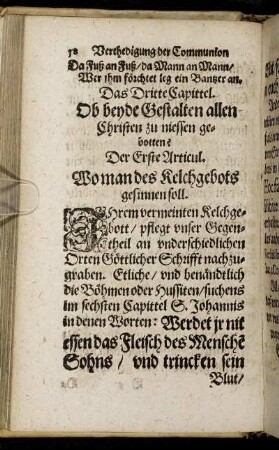 58 Verthedigung der Communion
Da Fuß an Fuß/ da Mann an Mann/
Wer jhm förchtet leg ein Pantzer an.
Das Dritte Capittel.
Ob beyde Gestalten allen
Christen zu niessen ge-
botten?
Der Erste Articul.
Wo man des Kelchgebots
gesinnen soll.
Ihrem vermeinten Kelchge-
bott/ pflegt vnser Gegen-
theil an vnderschiedlichen
Orten Göttlicher Schrifft nachzu-
graben. Etliche/ vnd benändtlich
die Böhmen oder Hussiten/ suchens
im sechsten Capittel S. Johannis
in denen Worten: Werdet jr nit
essen das Fleisch des Mensche͂
Sohns/ vnd trincken sein
Blut/